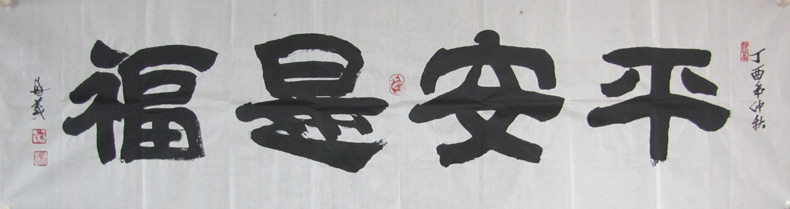 丁酉年仲秋
平安是福
海義